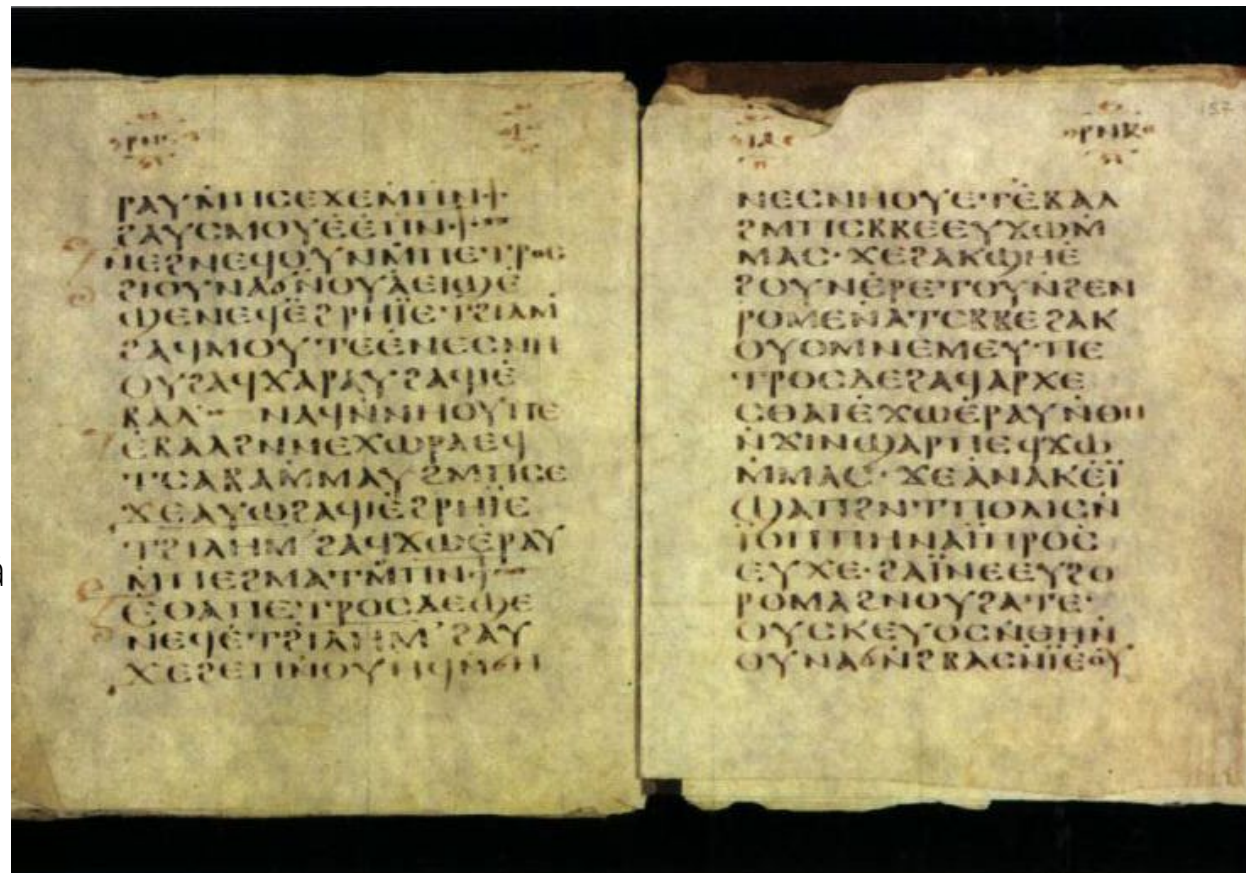 ⲣⲛⲁ
ⲣⲁⲩⲙ̇ⲡⲓⲥⲉϫⲉⲙ̇ⲡⲛ·ϯ·
ϩⲁⲩⲥⲙⲟⲩⲉ̇ⲉ̇ⲡⲛ·ϯ
ⲛⲉϩⲛⲉϥⲟⲩⲛⲙ̇ⲡⲉⲧⲣⲟⲥ
ϩⲓⲟⲩⲛⲁϭⲛ̇ⲟⲩⲁ̇ⲉⲓϣⲉ̇
ϣⲉⲛⲉϥⲉ̇ϩⲣⲏⲓ̈ⲉ̇ⲧϩⲓⲗⲙ
ϩⲁϥⲙⲟⲩⲧⲉⲉ̇ⲛⲉⲥⲛⲏ
ⲟⲩϩⲁϥⲭⲁⲣⲁⲩϩⲁϥⲓ̈ⲉ̇
ⲃⲁⲗ· ⲛⲁϥⲛ̇ⲛⲏⲟⲩⲡⲉ
ⲉ̇ⲃⲁⲗϩⲛⲛⲉⲭⲱⲣⲁⲉϥ
ⲧⲥⲁⲃⲁⲙ̇ⲙⲁⲩϩⲙⲡⲥⲉ
ϫⲉⲁⲩⲱϩⲁϥⲓ̈ⲉ̇ϩⲣⲏⲓ̈ⲉ
ⲧϩⲓⲗⲏⲙ ϩⲁϥϫⲱⲉ̇ⲣⲁⲩ
ⲙ̇ⲡⲉϩⲙⲁⲧⲙ̇ⲡⲛ·ϯ
ⲉⲑⲁⲡⲉⲧⲣⲟⲥⲇⲉϣⲉ
ⲛⲉϥⲉ̇ⲧϩⲓⲗⲏⲙ ϩⲁⲩ
ϫⲉϩⲉⲡⲓⲛⲟⲩⲛⲏϥⲛ̇ϭⲏ
ⲓⲁ ⲣⲛⲃ
ⲛⲉⲥⲛⲏⲟⲩⲉ·ⲧⲉ̇ⲃⲁⲗ
ϩⲙⲡⲥⲃⲃⲉⲉⲩϫⲱⲙ̇
ⲙⲁⲥ· ϫⲉϩⲁⲕϣⲏⲉ̇
ϩⲟⲩⲛⲉ̇ⲣⲉⲧⲟⲩⲛ̇ϩⲉⲛ
ⲣⲟⲙⲉⲛⲁⲧⲥⲃⲃⲉϩⲁⲕ
ⲟⲩⲟⲙⲛⲉⲙⲉⲩ·ⲡⲉ
ⲧⲣⲟⲥⲇⲉϩⲁϥⲁⲣⲭⲉ
ⲥⲑⲁⲓⲉ̇ϫⲱⲉ̇ⲣⲁⲩⲛ̇ⲑⲏ
ⲛ̇ϫⲓⲛϣⲁⲣⲡⲉϥϫⲱ
ⲙ̇ⲙⲁⲥ· ϫⲉⲁ̇ⲛⲁⲕⲉ̇ⲓ̈
ϣⲁⲡϩⲛ·ⲧⲡⲟⲗⲓⲥⲛ̇
ⲓ̈ⲟⲡⲡⲏⲛⲁⲓ̈ⲡⲣⲟⲥ
ⲉⲩⲭⲉ·ϩⲁⲓ̈ⲛⲉⲉⲩϩⲟ
ⲣⲟⲙⲁϩⲛⲟⲩϩⲁⲧⲉ·
ⲟⲩⲥⲕⲉⲩⲟⲥⲛ̇ⲑⲏⲛ̇
ⲟⲩⲛⲁϭⲛ̇ϩⲃⲁⲥⲛ̇ⲓ̈ⲉⲟⲩ